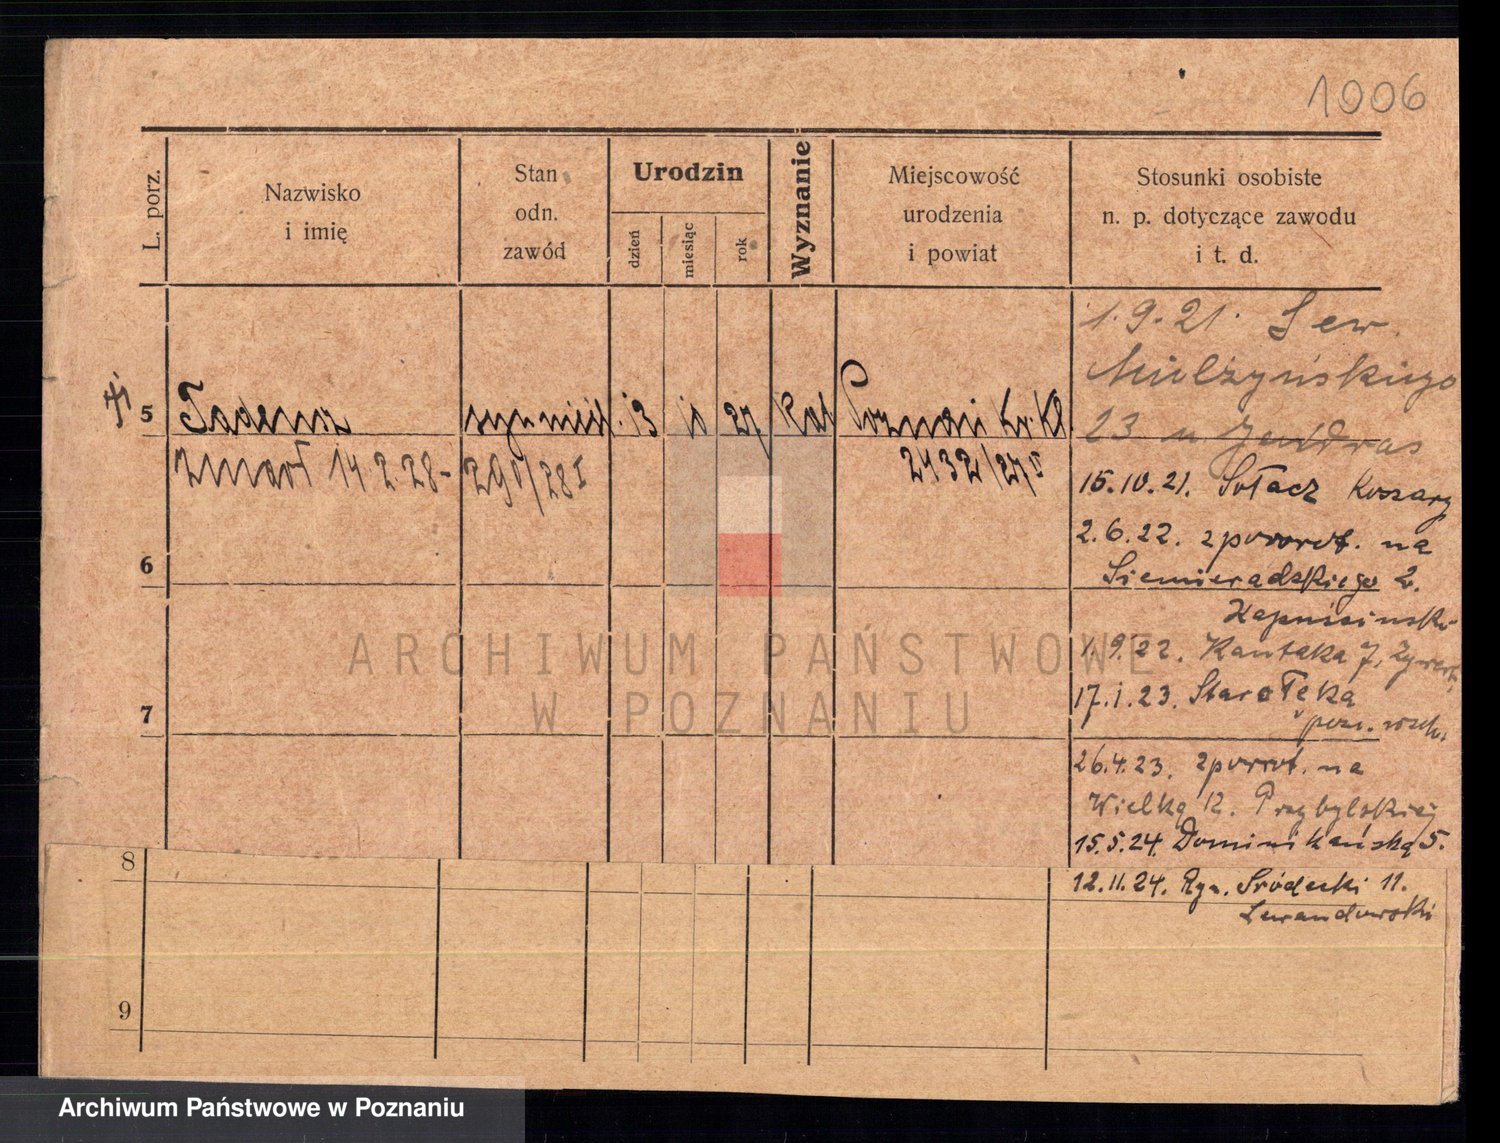 1006
L. porz.
Nazwisko
i imię
Stan
odn.
zawód
Urodzin
dzień
miesiąc
rok
Wyznanie
Miejscowość
urodzenia
i powiat
Stosunki osobiste
n. p. dotyczące zawodu
i t. d.
5
Tadeusz
13
10
27
kat
Poznań
zmarł 14.2.28-
290/28 I
2432/27
6
7
8
9
1.9.21. Sew.
Mielżyńskiego
23 u
15.10.21. Sołacz Koszary
2.6.22. zpowrot. na
Siemieradzkiego 2.
1.9.22. Kantaka 7,
17.1.23. Starołęka
26.4.23. zpowrot. na
Wielką 12. Przybylskiej
15.5.24. Dominikańską 5.
12.11.24. Ryn. Śródecki 11.
Lewandowski
ARCHIWUM PAŃSTWOWE
W POZNANIU
Archiwum Państwowe w Poznaniu